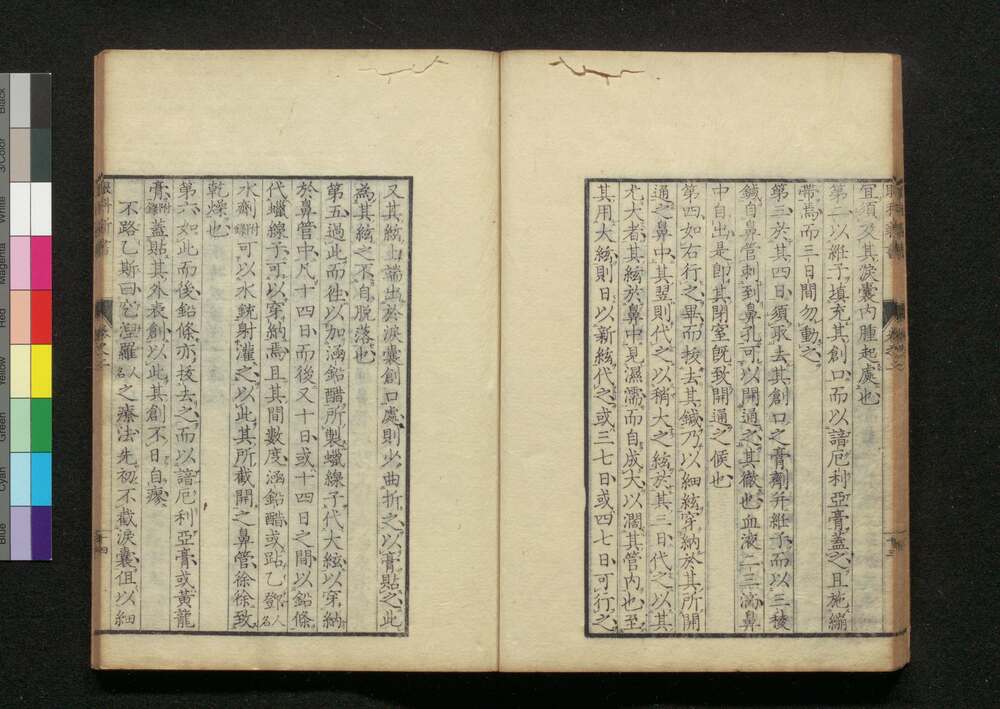 宜須及其淚囊内腫起處也
第二以維子填充其創口而以諳厄利亞膏蓋之且施繃
帶為而三日間勿動之
第三於其四日須取去其創口之膏劑并維子而以三棱
鍼自鼻管刺到鼻孔可以開通之其徹也血液一三滴鼻
中自出是卽其閉室旣致開通之候也
第四如右行之畢而拔去其鍼乃以細絃穿納於其所開
通之鼻中其翌則代之以稍大之絃於其三日代之以其
尤大者其絃於鼻中見濕濡而自成大以濶其管内也至
其用大絃則日以新絃代之或三七日或四七日可行之
又其絃上端出於淚囊創口處則少曲折之以膏貼之此
為其絃之不自脫落也
第五過此而往以加涵鉛醋所製蠟線子代大絃以穿納
於鼻管中凡十四日而後又十日或十四日之間以鉛條
代蠟線子可以穿納焉且其間數度涵鉛醋或跕乙鄧人名
水劑附錄可以水銃射灌之以此其所截開之鼻管徐徐致
乾燥也
第六如此而後鉛條亦拔去之而以諳厄利亞膏或黃龍
膏附錄蓋貼其外表創以此其創不日自瘳
不路乙斯曰它涅羅人名之療法先初不截淚囊但以細
Black
3/Color
White
Magenta
Red
Yellow
Green
Cyan
Blue